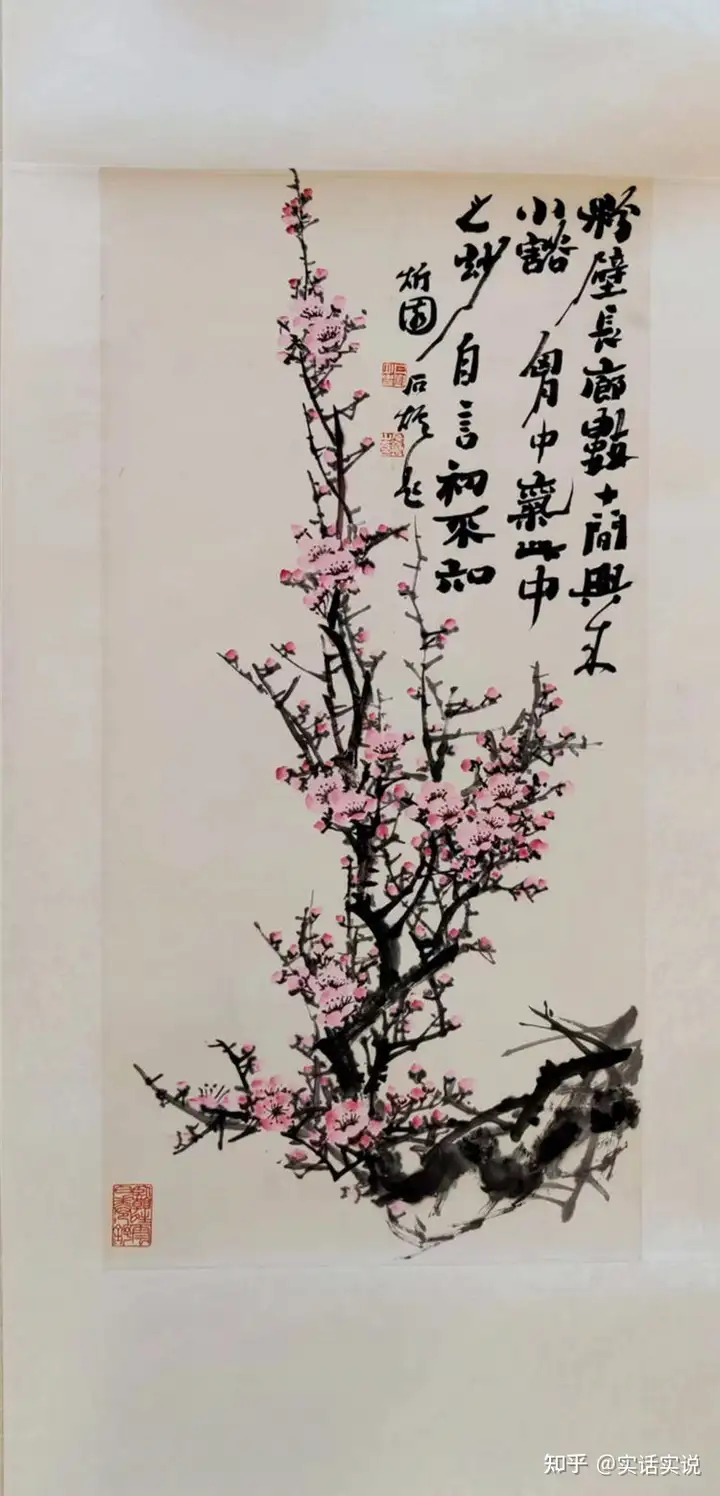 粉壁長廊數十間興來
小豁胷中氣此中
之妙自言初不知
炘園石題
知乎 @实话实说